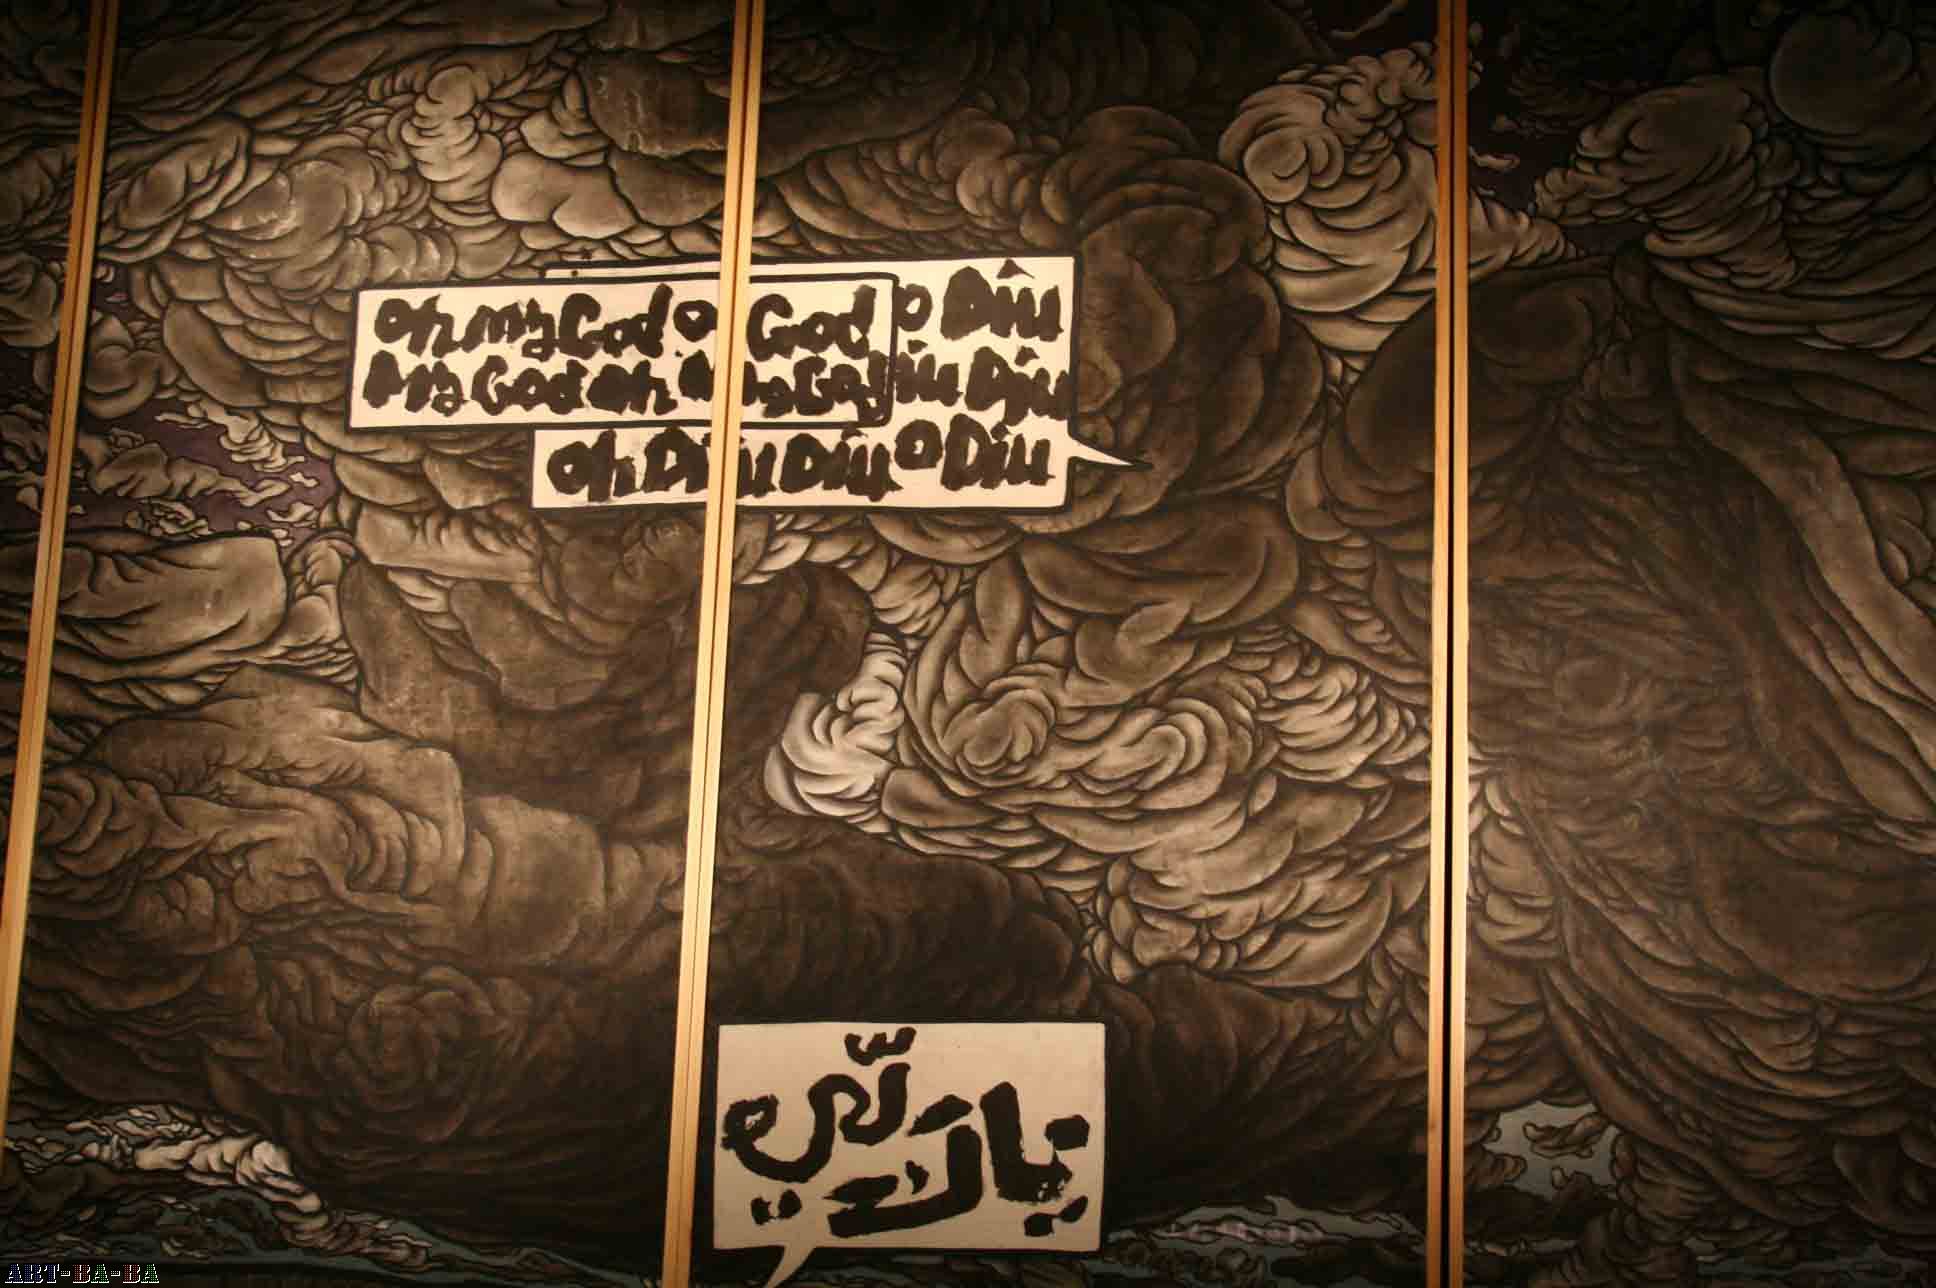 Oh my God o God o Diu
My God Oh My God iu Diu
Oh Diu Diu o Diu
ART-BA-BA